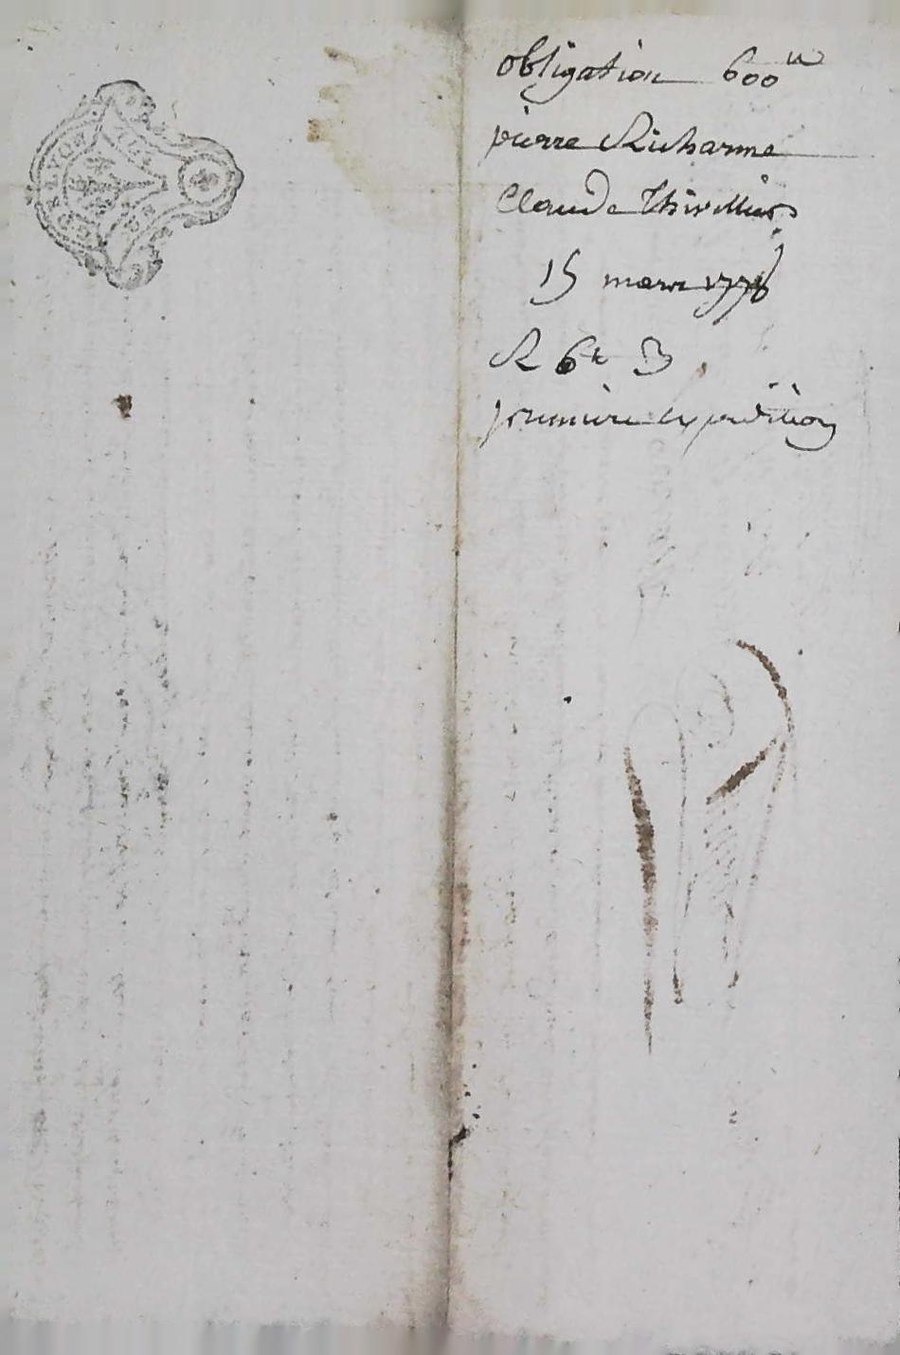 obligation 600ᵗᵗ
pierre Richarme
Claude Thivillier
15 mars 1778
R 6ᵗ 3
premiere expedition